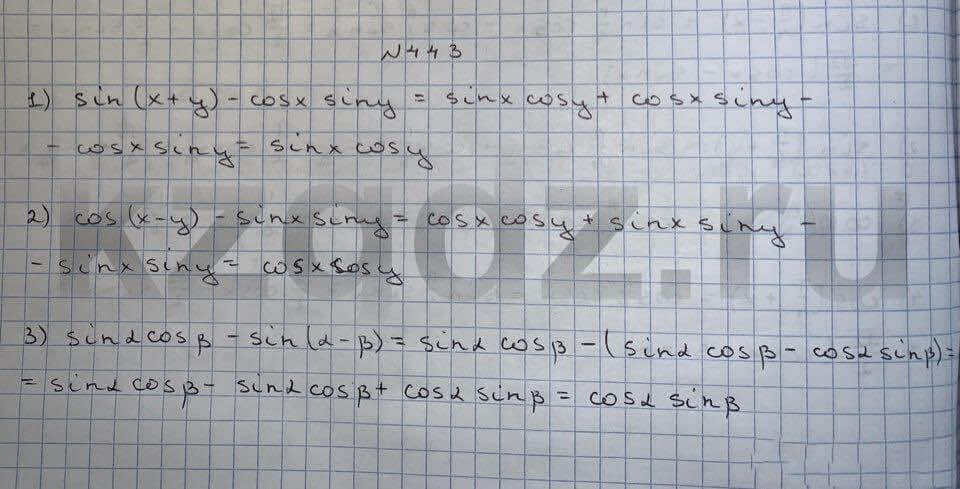 N443
1) sin(x+y) - cosx siny = sinx cosy + cosx siny -
- cosx siny = sinx cosy
2) cos(x-y) - sinx siny = cosx cosy + sinx siny -
- sinx siny = cosx cosy
3) sinα cosβ - sin(α-β) = sinα cosβ - (sinα cosβ - cosα sinβ) =
= sinα cosβ - sinα cosβ + cosα sinβ = cosα sinβ
kzgdz.ru